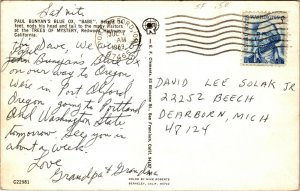 Sat nite
PAUL BUNYAN'S BLUE OX, "BABE"
feet, nods his head and tail to the many visitors
at the TREES OF MYSTERY, Redwood
California.
Hi Dave, We
John Bunyans Blue Ox
on our way to Oregon
Were in Port Orford
Oregon going to Portland
And Washington State
tomorrow. See you in
about a week.
Love
Grandpa & Grandma
G22981
COLOR BY MIKE ROBERTS
BERKELEY, CALIF. 94710
AM
1967
DAVID LEE SOLAK JR
22252 BEECH
DEARBORN, MICH
47124